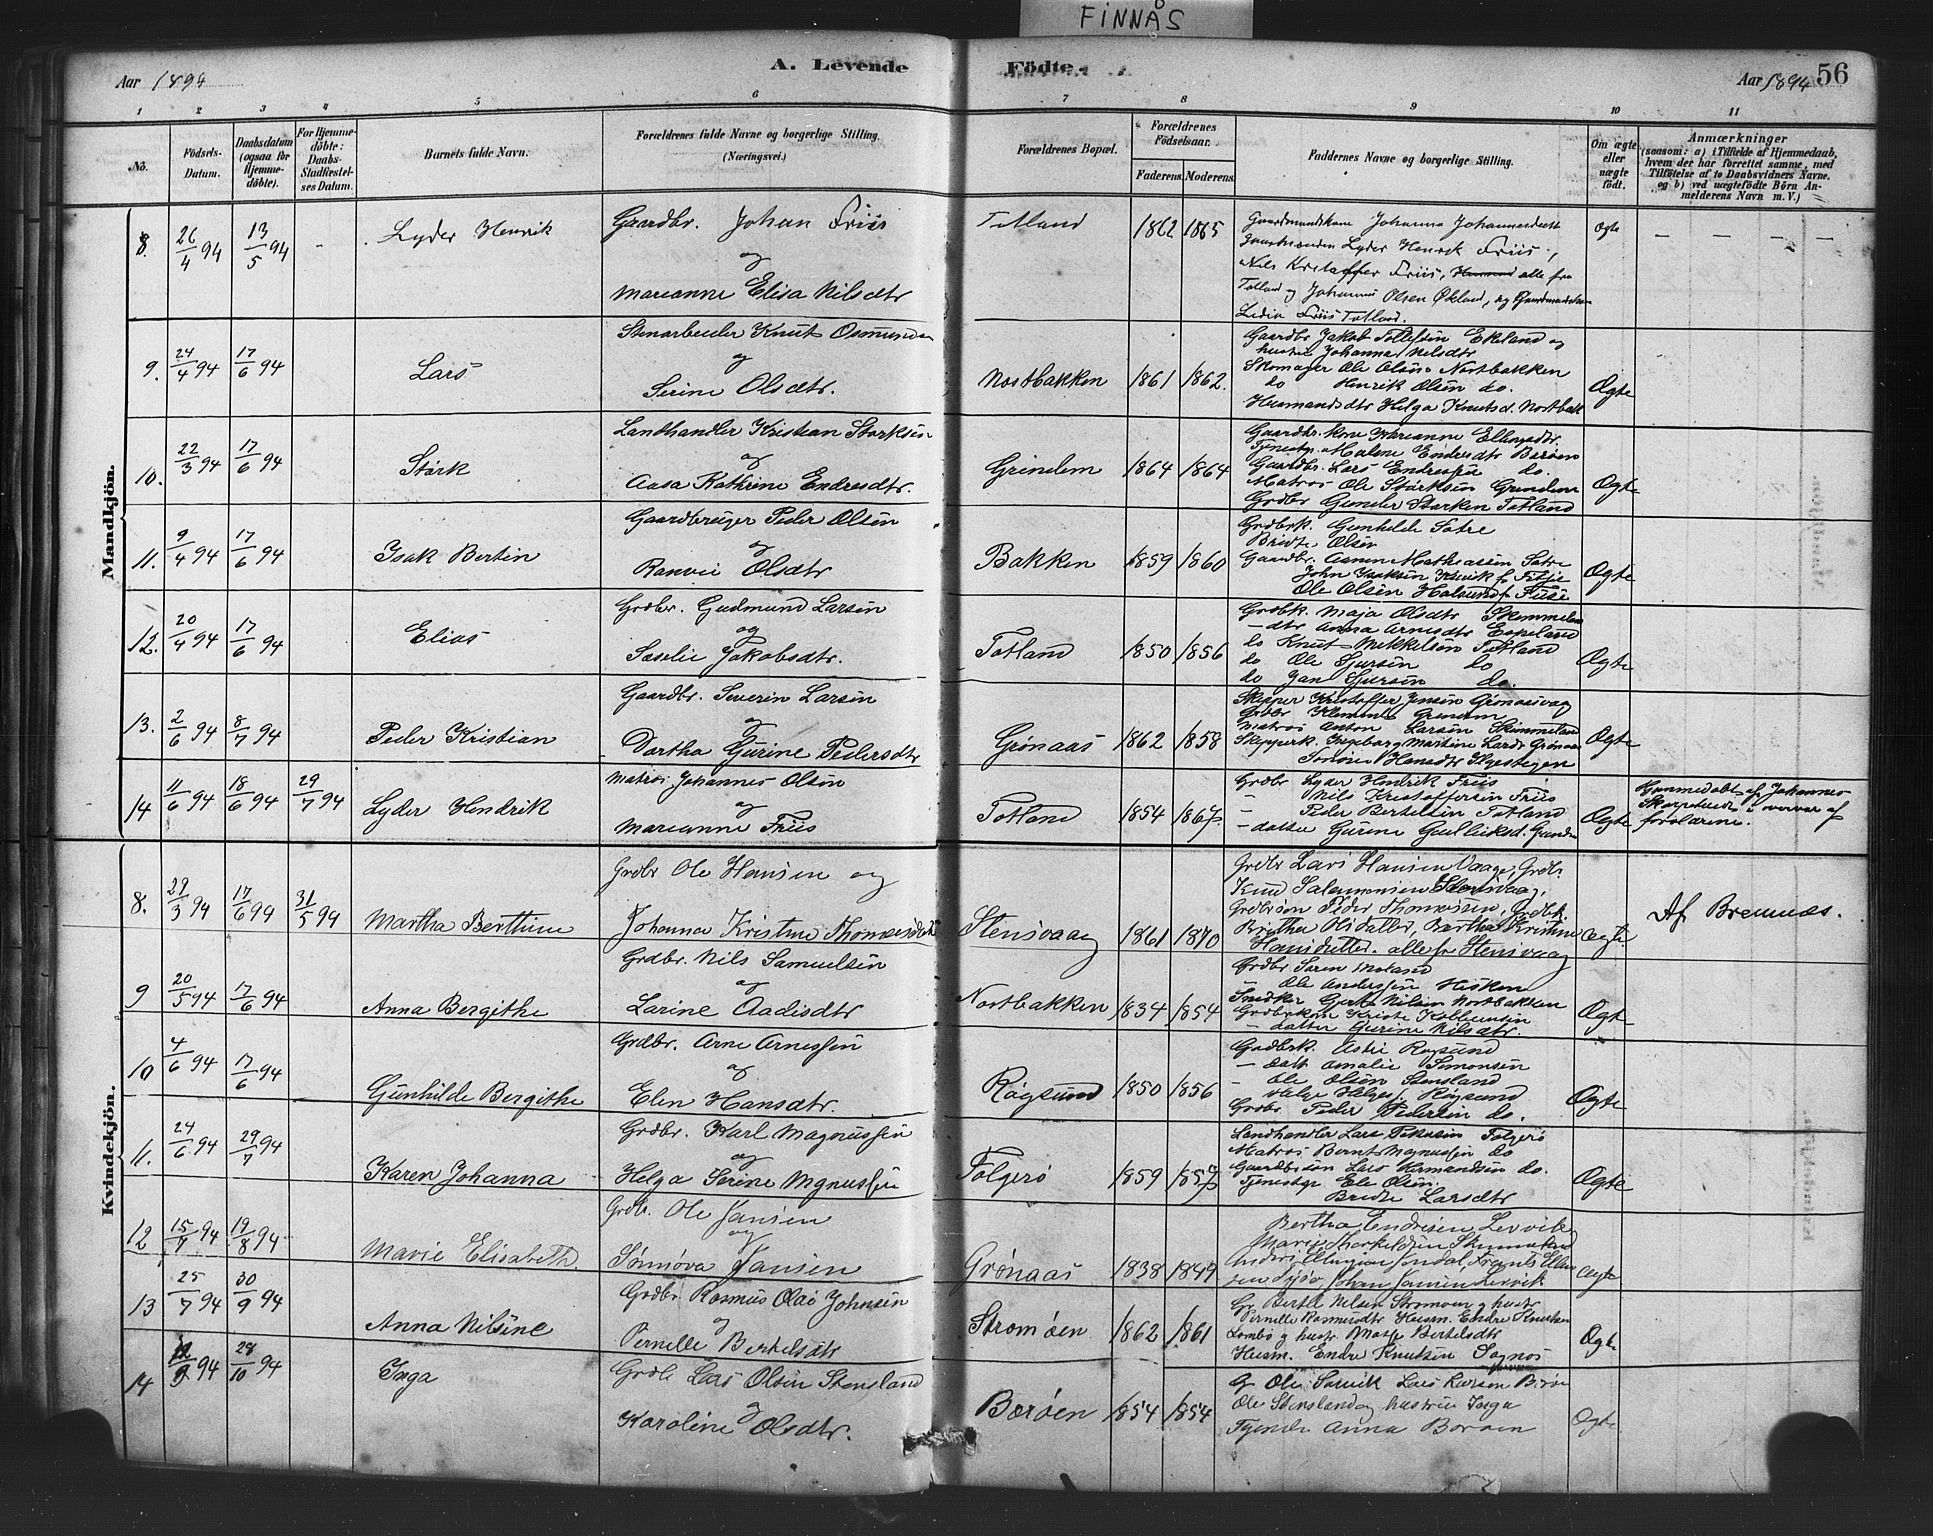 FINNÅS
Aar 1894
A. Levende Födte.
Aar 1894 56
1 2 3 4 5 6 7 8 9 10 11
No.
Födsels-Datum.
Daabsdatum (ogsaa for Hjemmedöbte).
For Hjemmedöbte: Daabs-Stadfæstelses Datum.
Barnets fulde Navn.
Forældrenes fulde Navne og borgerlige Stilling. (Næringsvei.)
Forældrenes Bopæl.
Forældrenes Födselsaar.
Faderens. Moderens.
Faddernes Navne og borgerlige Stilling.
Om ægte eller uægte födt.
Anmærkninger
(saasom: a) i Tilfælde af Hjemmedaab, hvem der har forrettet samme, med Tilföielse af to Daabsvidners Navne. og b) ved uægtefödte Börn Anmelderens Navn m. V.)
Mandkjön.
8. 26/4 94 13/5 94 - Lyder Henrik
Gaardbr. Johan Friis
og
Marianne Elisa Nilsdtr
Totland 1862 1865
Gaardmandskone Johanna Johannesdatt
Gaardmanden Lyder Henrik Friis,
Nils Kristoffer Friis, alle fra
Totland og Johannes Olsen Økland, og
Lidia Friis Totland.
Ægte
9. 24/4 94 17/6 94 Lars
Stenarbeider Knut Osmundsen
og
Serine Olsdtr.
Nostbakken 1861 1862.
Gaardbr Jakob Tollefsen Ekland og
hustru Johanna Nilsdtr
Skomager Ole Olsen Nostbakken
do Henrik Olsen do.
Husmandsdtr Helga Knutsd. Nostbak
Ægte
10. 22/3 94 17/6 94 Størk
Landhandler Kristian Størksen
og
Aasa Kathrine Endresdtr.
Grindem 1864 1864
Gaardbr. kone Marianne Ellingsdtr.
Tjenestp. Malene Endresdtr Børøen
Gaardbr. Lars Endressen do.
Matros Ole Størksen Grindem
Grdbr Gunder Størksen Totland
Ægte
11. 9/4 94 17/6 94 Isak Bertin
Gaardbruger Peder Olsen
og
Ranvei Olsdtr
Bakken 1859 1860
Grdbrk. Gunhilde Sætre
Brite Olsen
Gaardbr. Mathiassen Sætre
John Isaksen
Ole Olsen
Ægte
12. 20/4 94 17/6 94 Elias
Grdbr. Gudmund Larsen
og
Joselie Jakobsdtr.
Totland 1850 1856
Grdbrk. Maja Olsdtr
- dtr Anna Arnesdtr Eskeland
do Knut Mikkelsen Totland
do Ole Gjersen do
do Jan Gjersen do.
Ægte
13. 2/6 94 8/7 94 Peder Kristian
Gaardbr. Severin Larsen
og
Dortha Gurine Pedersdtr
Grønaas 1862 1858
Skipper Kristoffer Jensen Grønaasvaag
Grdbr Klement Grindem
Matros Anton Larsen
Skipperk. Ingeborg Martine Larsd Grønaas
Hansdtr
Ægte
14 11/6 94 18/6 94 29/7 94 Lyder Hendrik
Matros Johannes Olsen
og
Marianne Friis
Totland 1854 1867
Grdbr Lyder Hendrik Friis
- Nils Kristoffersen Friis
- Peder Bertelsen Totland
- datter Gurine Gulliksd.
Ægte
Hjemmedøbt af Johannes
i overvær af
forældrene.
Kvindekjön.
8. 29/3 94 17/6 94 31/5 94 Martha Berthine
Grdbr Ole Hansen og
Johanna Kristine Thomasdatter
Stensvaag 1861 1870
Grdbr Lars Hansen Vaage, Grdbr.
Knud Salomonsen Stensvaag,
Grdbrsøn Peder Thomassen, Grdbrk.
Britha Olsdatter, Bertha Kristine
Hansdatter. alle fr Stensvaag
Ægte.
Af Bremnæs.
9 20/5 94 17/6 94 Anna Bergithe
Grdbr. Nils Samuelsen
og
Larine Aadisdtr
Nostbakken 1834 1854
Grdbr Søren
- Ole Andersen Hisken
Snedker Gert Nilsen Nostbakken
Grdbrkone Kriste
- datter Gurine Nilsdtr.
Ægte
10 4/6 94 17/6 94 Gunhilde Bergithe
Grdbr. Arne Arnessen
og
Elen Hansdtr.
Røgsund 1850 1856
Grdbrk. Astri Røgsund
- datt Amalie Simonsen
- Ole Olsen Stensland
Helge Helges. Røgsund
Grdbr. Peder Pedersen do.
Ægte
11. 24/6 94 29/7 94 Karen Johanna
Grdbr. Karl Magnussen
og
Helga Serine Mgnussen
Folgerø 1859 1857
Landhandler Lars Folgerø
Matros Bernt Magnussen do
Gaardbrsøn Lars Hermandsen do.
Tjenestp Ole Olsen.
Brite Larsdtr
Ægte
12 15/7 94 19/8 94 Marie Elisabeth.
Grdb. Ole Jansen
og
Sønnøva Jansen
Grønaas 1838 1849
Bertha Endresen Lervik
Marie Thorkildsen
Johan Jansen Lervik
Ægte
13 25/7 94 30/9 94 Anna Nilsine
Grdbr. Rasmus Olai Johnsen
og
Pernille Bertelsdtr
Strømøen 1862 1861
Gr Bertel Nilsen Strømøen og hustr
Pernille Rasmusdtr Husm. Endre Knutsen
og hustr. Bertelsdtr
Husm. Endre Knutsen
Ægte
14 9 94 28/10 94 Inga
Grdb Lars Olsen Stensland
og
Karoline Olsdtr.
Børøen 1854 1854
Gr Ole
Ole Stensland og hustru Inga
Anna Børøen
Ægte